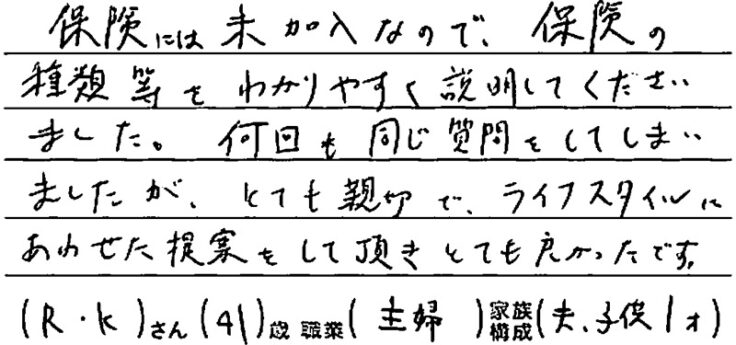 保険には未加入なので、保険の
種類等をわかりやすく説明してください
ました。何回も同じ質問をしてしまい
ましたが、とても親切で、ライフスタイルに
あわせた提案をして頂きとても良かったです。
(R・K)さん(41)歳 職業(主婦)家族構成(夫、子供1才)